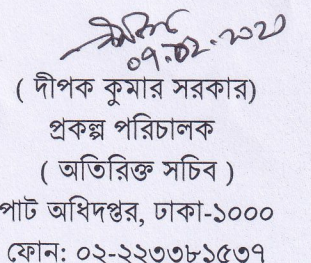 ০৭.০২.২০২১
( দীপক কুমার সরকার)
প্রকল্প পরিচালক
( অতিরিক্ত সচিব )
পাট অধিদপ্তর, ঢাকা-১০০০
ফোন: ০২-২২৩৩৮১৫৩৭